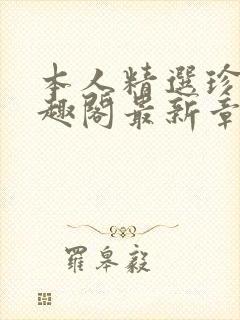 本人精選珍
趣閣最新章
羅皋毅